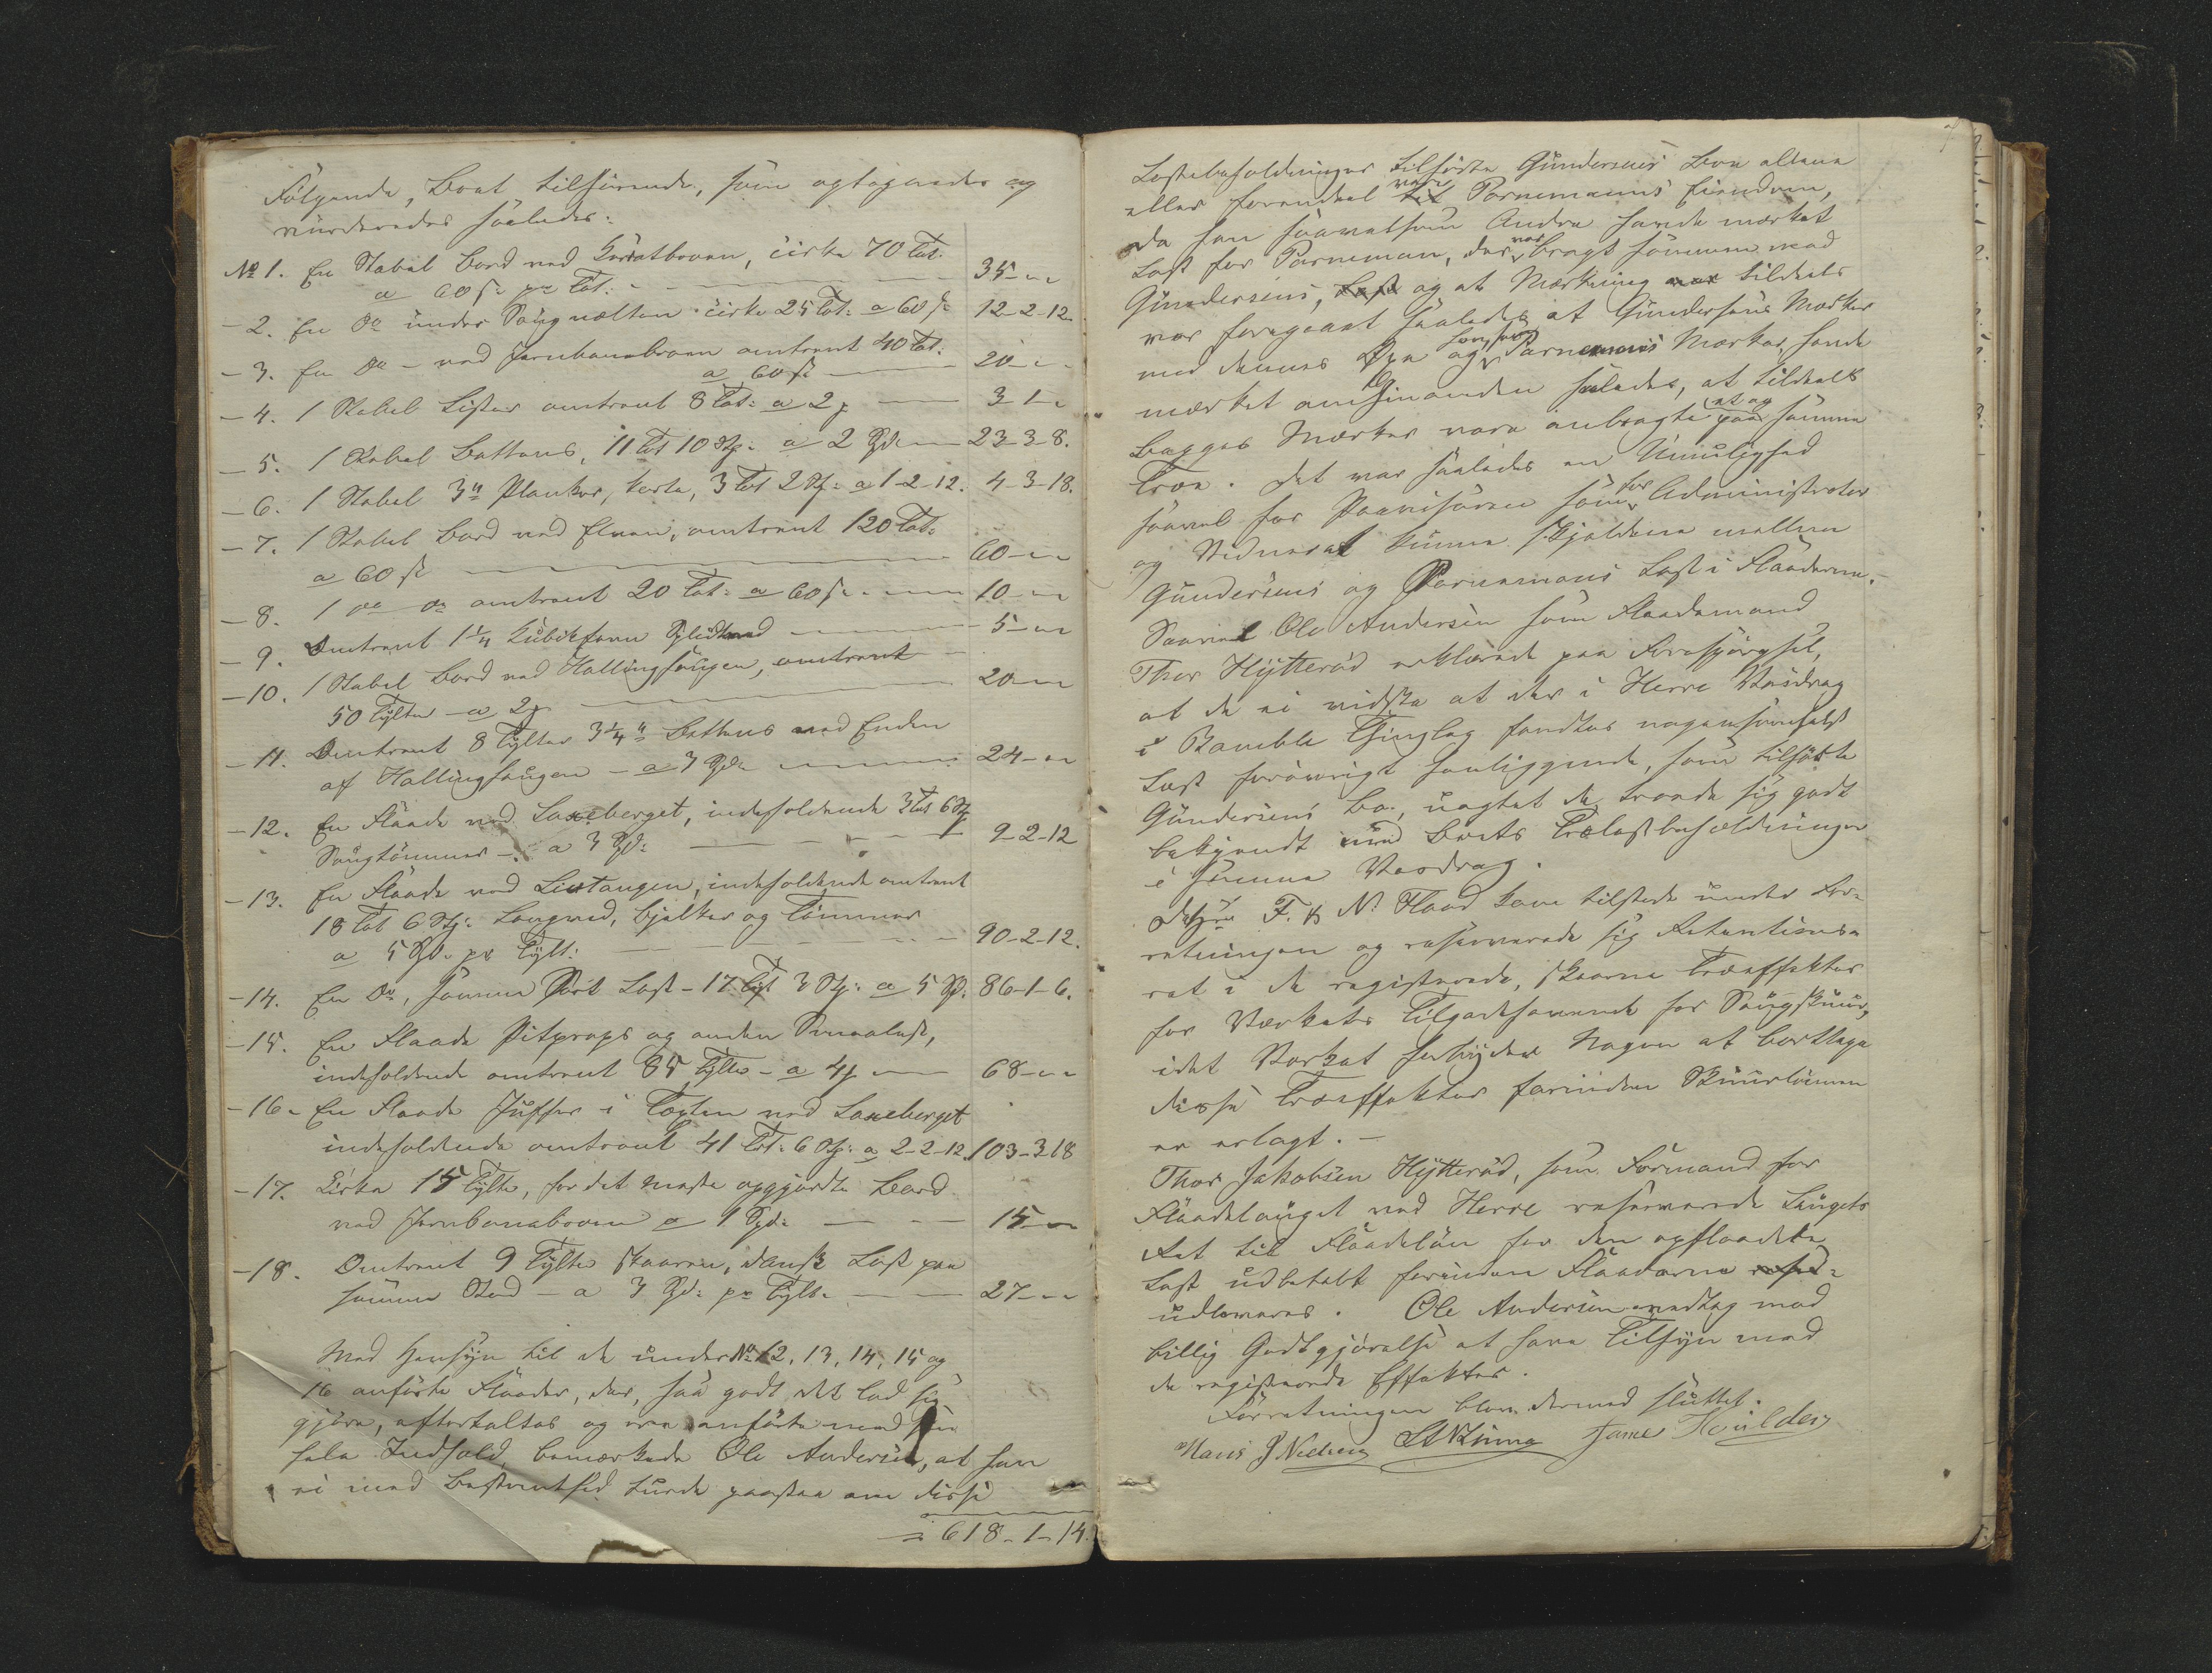 Følgende, Boet tilhørende, som optoges og
vurderedes saaledes:
No 1. En Stabel Bord ved Kørratbroen, cirka 70 Tlt.
a 60 s. pr Tlt: 35 - -
- 2. En Do under Saugvælten cirka 25 Tlt: a 60 s 12-2-12.
- 3. En Do - ved Jernbanebroen omtrent 40 Tlt.
a 60 s 20 - -
- 4. 1 Stabel Lister omtrent 8 Tlt: a 2 3 1 -
- 5. 1 Stabel Battens, 11 Tlt 10 Stk: a 2 Spd. 23-3-8.
- 6. 1 Stabel 3" Planker, korte, 3 Tlt 2 Stk: a 1-2-12. 4-3-18.
- 7. 1 Stabel Bord ved Elven, omtrent 120 Tlt.
a 60 s 60 - -
- 8. 1 do do omtrent 20 Tlt: a 60 s. 10 - -
- 9. Omtrent 1 1/4 Kubikfavn Splidtved 5 - -
- 10. 1 Stabel Bord ved Hallingsaugen, omtrent
50 Tylter a 2 20 - -
- 11. Omtrent 8 Tylter 3 1/4" Battens ved Enden
af Hallingsaugen - a 3 Spd. 24 - -
- 12. En Flaade ved Laxeberget, indeholdende 3 Tlt 6 Stk
Saugtømmer - a 3 Spd: 9-2-12
- 13. En Flaade ved Listangen, indeholdende omtrent
18 Tlt 6 Stk: Langved, Bjelker og Tømmer
a 5 Spd. pr Tylt: 90-2-12.
- 14. En Do, samme Sort Last - 17 Tylt 3 Stk: a 5 Sp. 86-1-6.
- 15. En Flaade Pitprops og anden Smaalast,
indeholdende omtrent 85 Tylter - a 4 68 - -
- 16. En Flaade Juffer i Tøgten ved Laxeberget
indeholdende omtrent 41 Tlt: 6 Stk: a 2-2-12. 103-3 18
- 17. Cirka 15 Tylter, for det meste opgjordte Bord
ved Jernbanebroen a 1 Spd: 15 - -
- 18. Omtrent 9 Tylter skaaren, dansk Last paa
samme Sted - a 3 Spd: pr Tylt. 27 - -
Med Hensyn til de under No 12, 13, 14, 15 og
16 anførte Flaader, der, saa godt det lod sig
gjøre, eftertaltes og ere anførte med sin
hele Indhold, bemærkede Ole Andersen, at han
ei med Bestemthed turde paastaa om disse
= 618-1-14.
Lastebeholdninger tilhørte Gundersens Bo alene
eller forendeel vare Parnemanns Eiendom,
da han saavelsom Andre havde mærket
Last for Parneman, der var bragt sammen med
Gundersens, og at Mærkning tildeels
var foregaaet saaledes at Gundersens Mærker
med dennes Øxe og Parnemans Mærker, havde
mærket om hinanden saaledes, at tildeels
Begges Mærker vare anbragte paa samme
Træe. Det var saaledes en Umulighed
saavel for Prøvisoren som for Administrator
og Vidner at kunne skjeldne mellem
Gundersens og Parnemans Last i Flaaderne.
Saavel Ole Andersen som Flaademand
Thor Hytterød erklærede paa Forespørgsel,
at de ei vidste at der i Herre Vasdrag
i Bamble Thinglag fandtes nogensomhelst
Last forøvrigt henliggende, som tilhørte
Gundersens Bo, uagtet de troede sig godt
bekjendt med Boets Trælastbeholdninger
i samme Vasdrag.
F. & N. Flood kom tilstede under For-
retningen og reserverede sig Retentions-
ret i de registrerede, skaarne Træeffekter
for Værkets Tilgodehavende for Saugskuur,
idet Værket forbyder Nogen at borttage
disse Træeffekter forinden Skuurlønnen
er erlagt. -
Thor Jakobsen Hytterød, som Formand for
Flaadelauget ved Herre reserverede Laugets
Ret til Flaadeløn for den opflaadede
Last udbetalt forinden Flaaderne
udleveres. Ole Andersen vedtog mod
billig Godtgjørelse at have Tilsyn med
de registrerede Effekter.
Forretningen blev dermed sluttet.
Hans J Nielsen